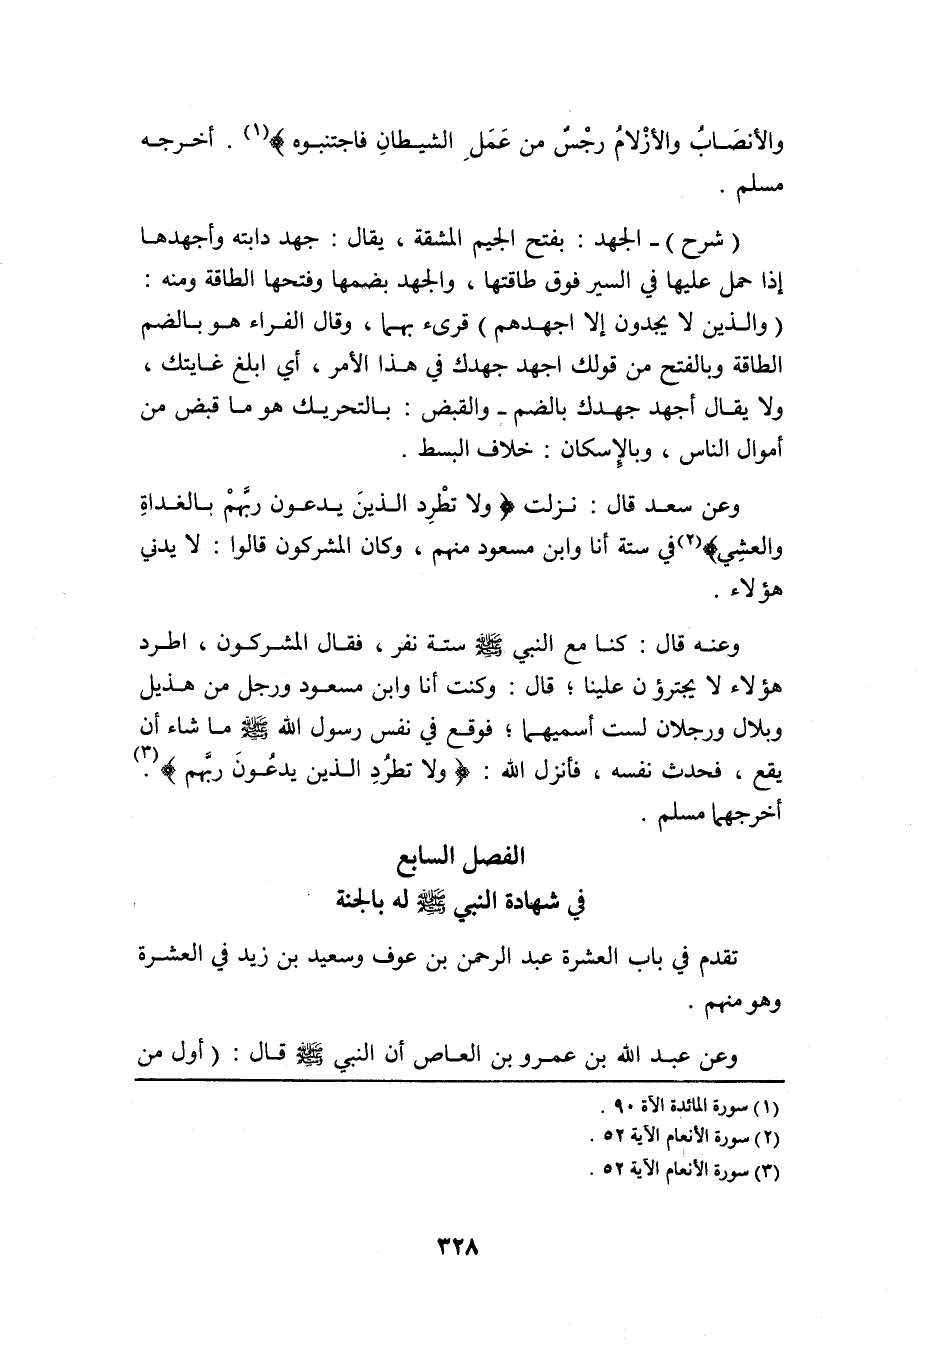 والأنصَـابُ والأزْلامُ رجْسٌ من عَمَلِ الشيـطانِ فاجتنبـوه ﴾(١) . أخـرجـه
مسلم .
( شرح ) ـ الجهد : بفتح الجيم المشقة ، يقال : جهد دابته وأجهدهـا
إذا حمل عليها في السير فوق طاقتها ، والجهد بضمها وفتحها الطاقة ومنه :
( والـذين لا يجدون إلا اجهـدهم ) قرىء بهـما ، وقال الفـراء هـو بـالضم
الطاقة وبالفتح من قولك اجهد جهدك في هـذا الأمر ، أي ابلغ غـايتك ،
ولا يقـال أجهد جهـدك بالضم ـ والقبض : بـالتحريـك هو مـا قبض من
أموال الناس ، وبالإسكان : خلاف البسط .
وعن سعـد قال : نـزلت ﴿ ولا تطْرِد الـذينَ يـدعـون ربَّهمْ بـالغداةِ
والعشِي﴾(٢)في ستة أنا وابن مسعود منهم ، وكان المشركون قالوا : لا يدني
هؤلاء .
وعنـه قال : كنـا مع النبي ﷺ ستـة نفر ، فقـال المشركـون ، اطـرد
هؤلاء لا يجترؤ ن علينا ؛ قال : وكنت أنا وابن مسعود ورجل من هـذيل
وبلال ورجلان لست أسميهـما ؛ فوقـع في نفس رسول الله ﷺ مـا شاء أن
يقع ، فحدث نفسه ، فأنزل الله : ﴿ ولا تطرُدِ الـذين يدعُـونَ ربَّهم ﴾(٣).
أخرجهما مسلم .
الفصل السابع
في شهادة النبي ﷺ له بالجنة
تقدم في باب العشرة عبد الرحمن بن عوف وسعيد بن زيد في العشـرة
وهو منهم .
وعن عبـد الله بن عمـرو بن العـاص أن النبي ﷺ قـال : ( أول من
(١) سورة المائدة الآة ٩٠ .
(٢) سورة الأنعام الآية ٥٢ .
(٣) سورة الأنعام الآية ٥٢ .
٣٢٨